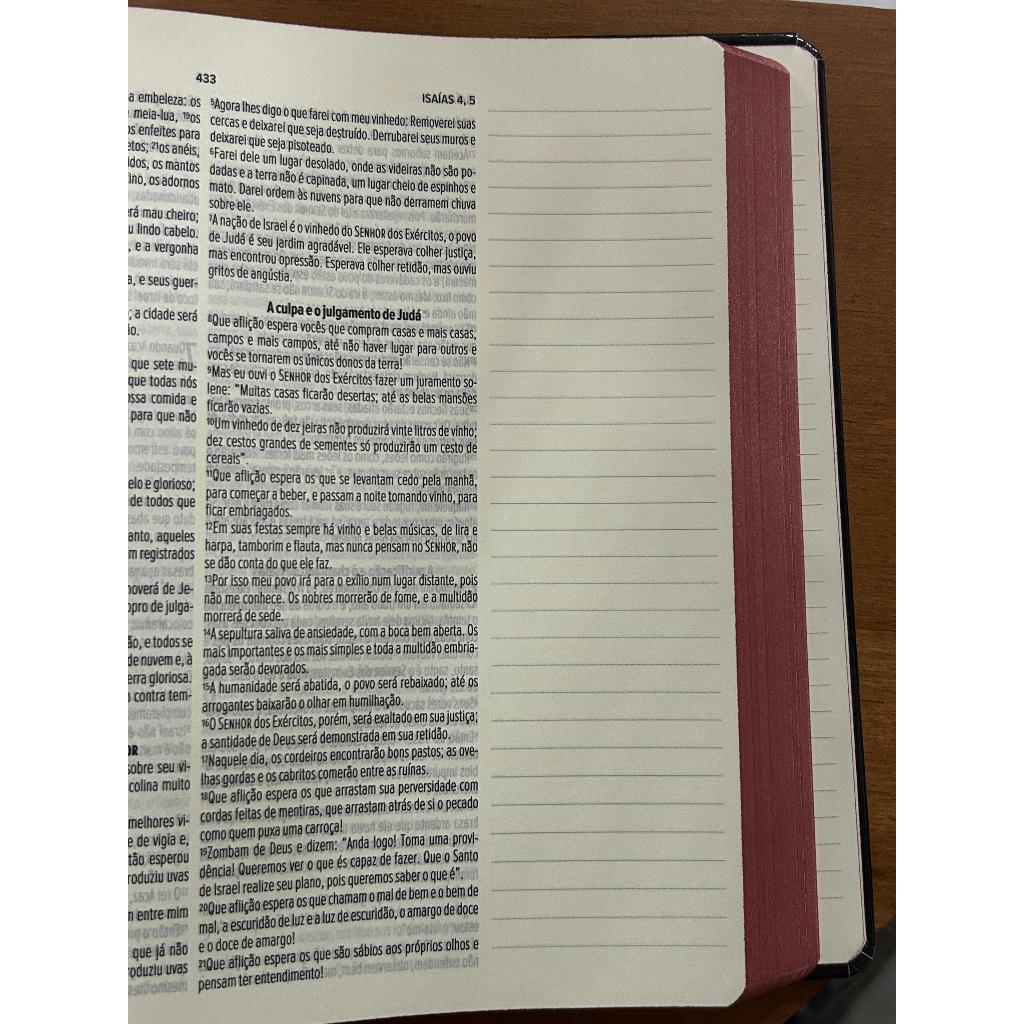 433
ISAÍAS 4, 5
a embeleza: os
meia-lua, ¹⁹os
os enfeites para
etos; ²¹os anéis,
idos, os mantos
ino, os adornos
rá mau cheiro;
u lindo cabelo.
, e a vergonha
a, e seus guer-
; a cidade será
ão.
que sete mu-
que todas nós
ossa comida e
para que não
elo e glorioso;
de todos que
anto, aqueles
m registrados
moverá de Je-
opro de julga-
ão, e todos se
de nuvem e, à
erra gloriosa.
o contra tem-
OR
sobre seu vi-
colina muito
melhores vi-
e de vigia e,
tão esperou
roduziu uvas
m entre mim
que já não
roduziu uvas
⁵Agora lhes digo o que farei com meu vinhedo: Removerei suas
cercas e deixarei que seja destruído. Derrubarei seus muros e
deixarei que seja pisoteado.
⁶Farei dele um lugar desolado, onde as videiras não são po-
dadas e a terra não é capinada, um lugar cheio de espinhos e
mato. Darei ordem às nuvens para que não derramem chuva
sobre ele.
⁷A nação de Israel é o vinhedo do SENHOR dos Exércitos, o povo
de Judá é seu jardim agradável. Ele esperava colher justiça,
mas encontrou opressão. Esperava colher retidão, mas ouviu
gritos de angústia.
A culpa e o julgamento de Judá
⁸Que aflição espera vocês que compram casas e mais casas,
campos e mais campos, até não haver lugar para outros e
vocês se tornarem os únicos donos da terra!
⁹Mas eu ouvi o SENHOR dos Exércitos fazer um juramento so-
lene: “Muitas casas ficarão desertas; até as belas mansões
ficarão vazias.
¹⁰Um vinhedo de dez jeiras não produzirá vinte litros de vinho;
dez cestos grandes de sementes só produzirão um cesto de
cereais”.
¹¹Que aflição espera os que se levantam cedo pela manhã,
para começar a beber, e passam a noite tomando vinho, para
ficar embriagados.
¹²Em suas festas sempre há vinho e belas músicas, de lira e
harpa, tamborim e flauta, mas nunca pensam no SENHOR, não
se dão conta do que ele faz.
¹³Por isso meu povo irá para o exílio num lugar distante, pois
não me conhece. Os nobres morrerão de fome, e a multidão
morrerá de sede.
¹⁴A sepultura saliva de ansiedade, com a boca bem aberta. Os
mais importantes e os mais simples e toda a multidão embria-
gada serão devorados.
¹⁵A humanidade será abatida, o povo será rebaixado; até os
arrogantes baixarão o olhar em humilhação.
¹⁶O SENHOR dos Exércitos, porém, será exaltado em sua justiça;
a santidade de Deus será demonstrada em sua retidão.
¹⁷Naquele dia, os cordeiros encontrarão bons pastos; as ove-
lhas gordas e os cabritos comerão entre as ruínas.
¹⁸Que aflição espera os que arrastam sua perversidade com
cordas feitas de mentiras, que arrastam atrás de si o pecado
como quem puxa uma carroça!
¹⁹Zombam de Deus e dizem: “Anda logo! Toma uma provi-
dência! Queremos ver o que és capaz de fazer. Que o Santo
de Israel realize seu plano, pois queremos saber o que é”.
²⁰Que aflição espera os que chamam o mal de bem e o bem de
mal, a escuridão de luz e a luz de escuridão, o amargo de doce
e o doce de amargo!
²¹Que aflição espera os que são sábios aos próprios olhos e
pensam ter entendimento!